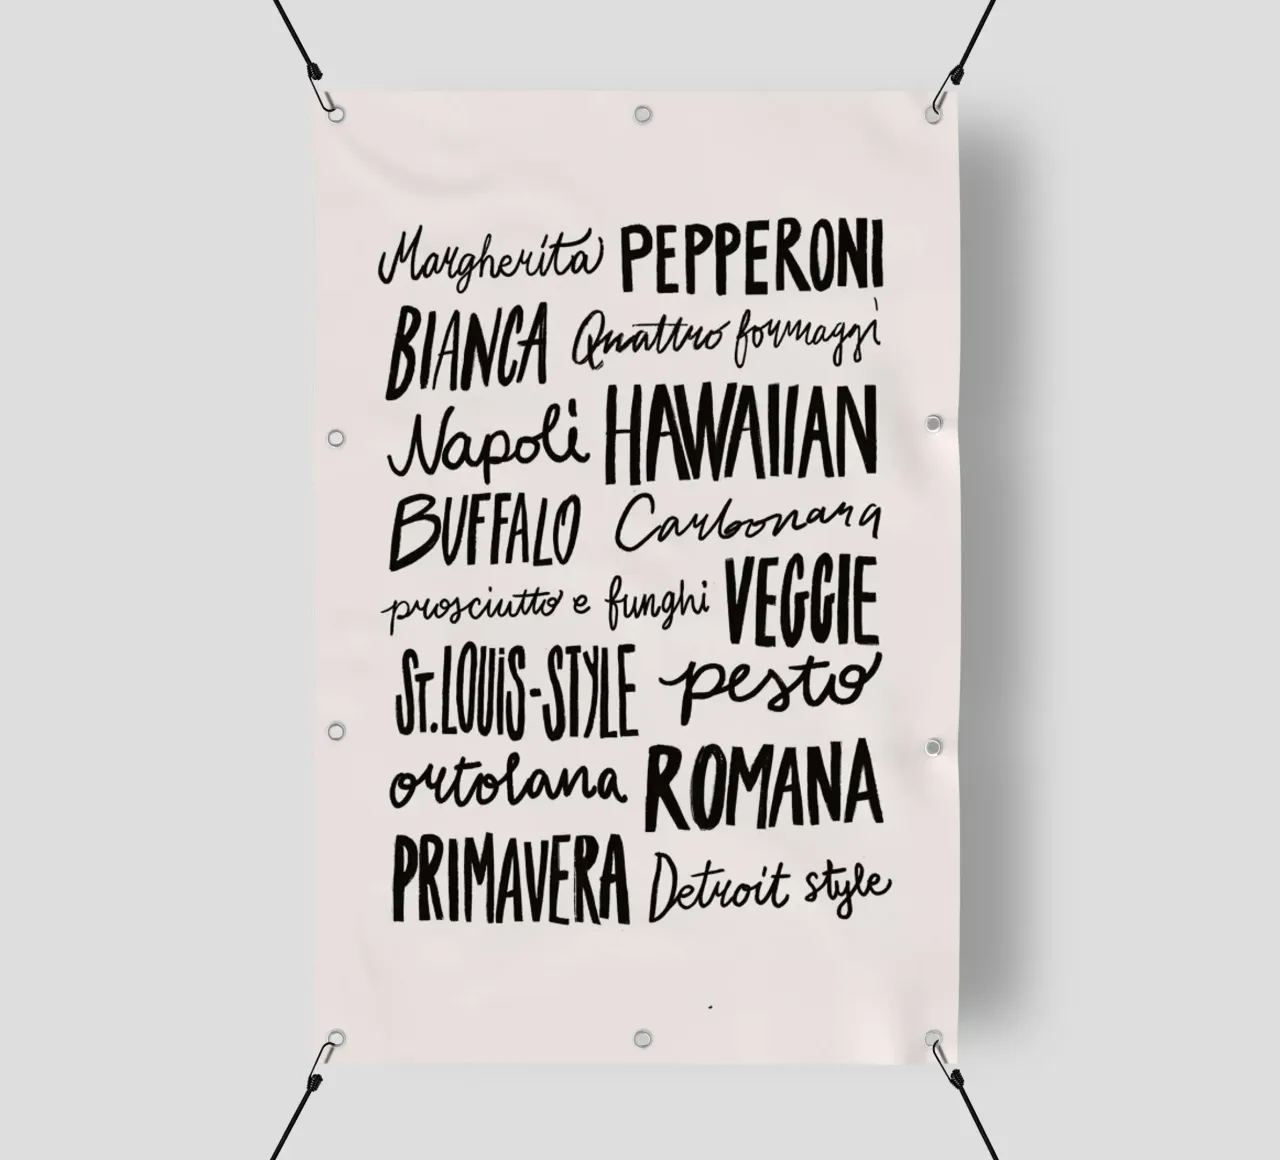 Margherita PEPPERONI
BIANCA Quattro formaggi
Napoli HAWAIIAN
BUFFALO Carbonara
prosciutto e funghi VEGGIE
ST.LOUIS-STYLE pesto
ortolana ROMANA
PRIMAVERA Detroit style